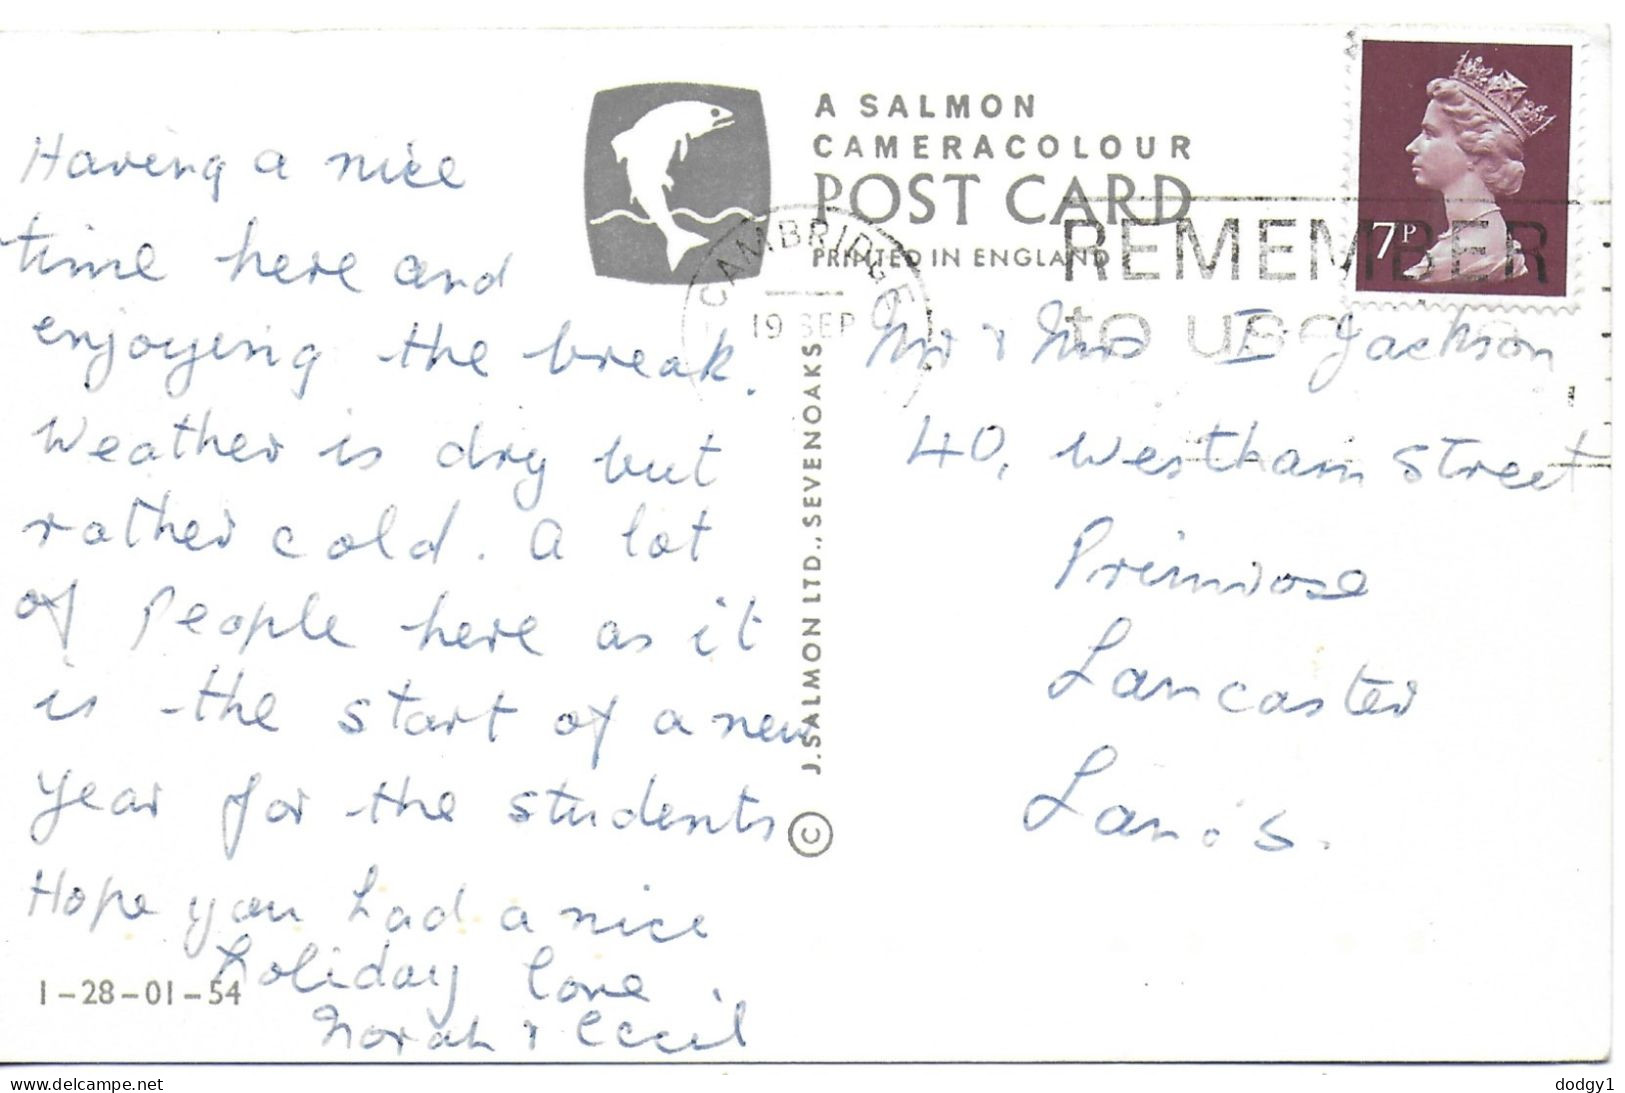 Having a nice
time here and
enjoying the break.
Weather is dry but
rather cold. A lot
of People here as it
is the start of a new
year for the students
Hope you had a nice
holiday love
Norah & Cecil
1-28-01-54
A SALMON
CAMERACOLOUR
POST CARD
PRINTED IN ENGLAND
© J. SALMON LTD., SEVENOAKS
CAMBRIDGE
19 SEP
REMEMBER
to use
7P
Mr & Mrs E Jackson
40, Westham Street
Primrose
Lancaster
Lancs.
delcampe.net
dodgy1